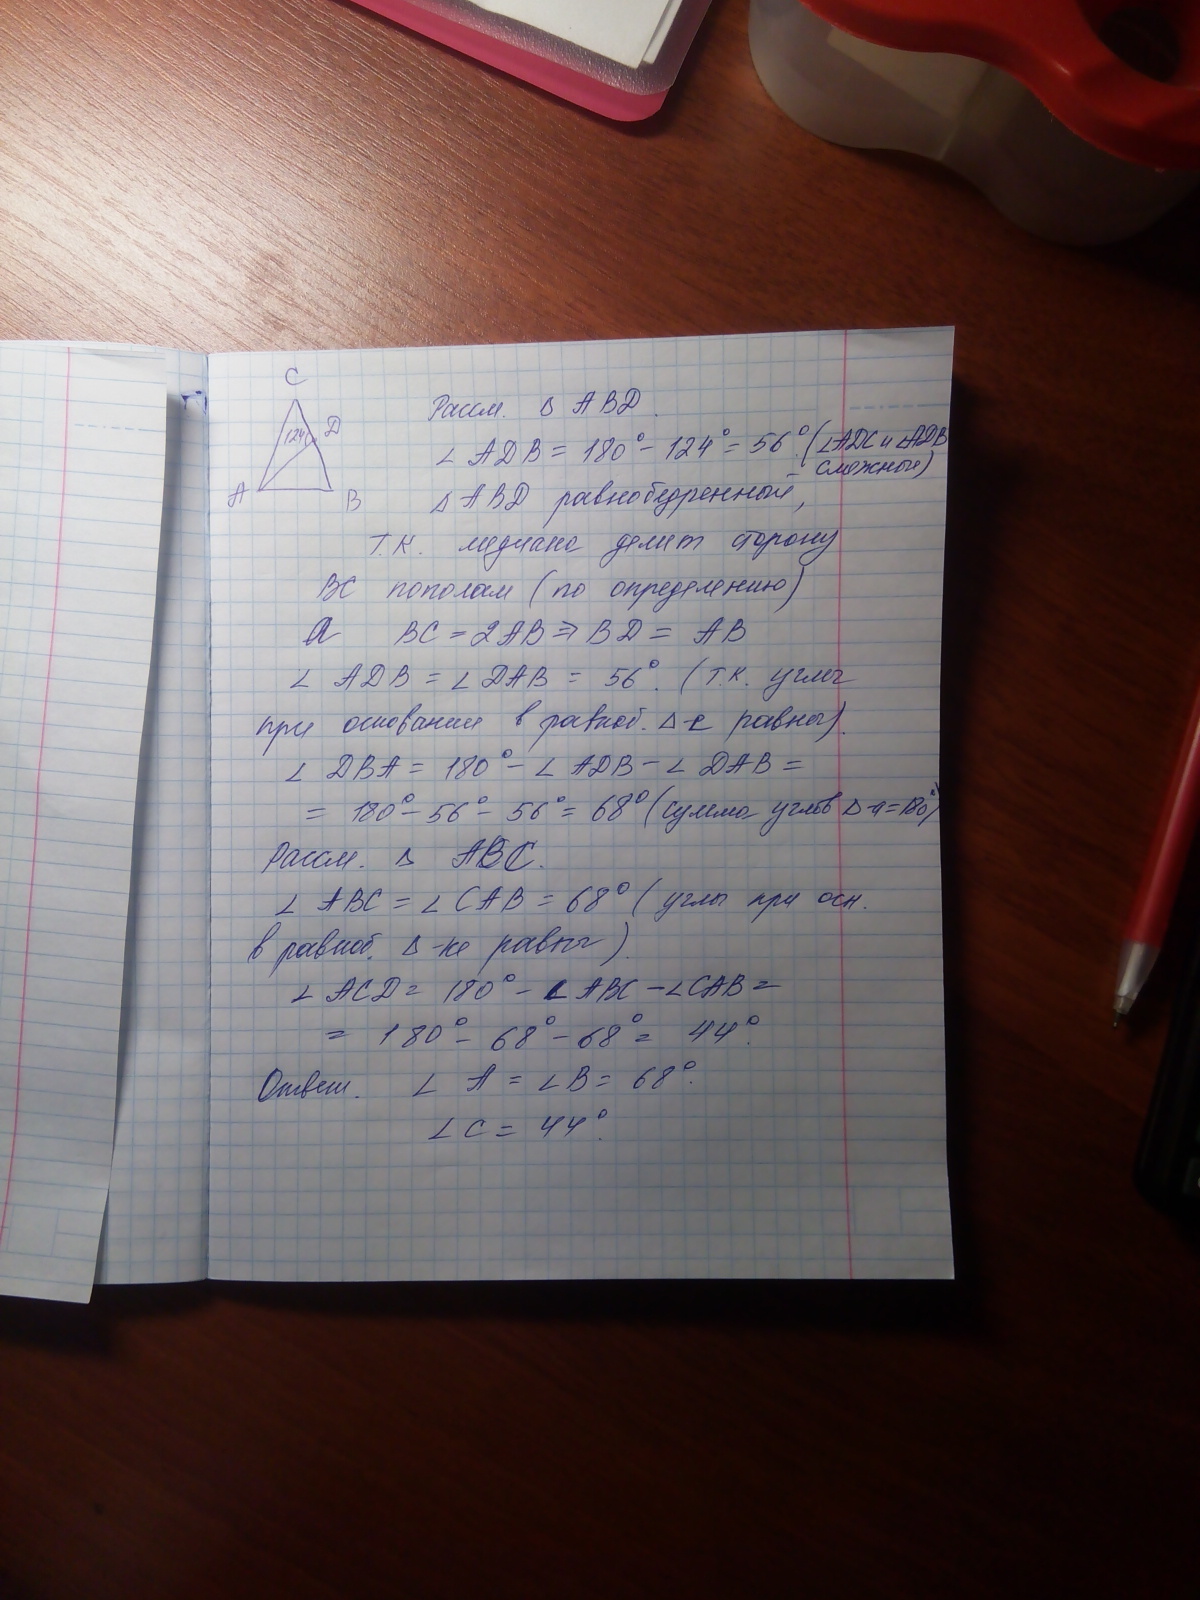 C
124°
D
A
B
Рассм. Δ ABD.
∠ ADB = 180° - 124° = 56°. (∠ADC и ∠ADB
- смежные)
Δ ABD равнобедренный,
т.к. медиана делит сторону
BC пополам (по определению)
а BC = 2AB ⇒ BD = AB
∠ ADB = ∠ DAB = 56°. (т.к. углы
при основании в равноб. Δ-е равны).
∠ DBA = 180° - ∠ ADB - ∠ DAB =
= 180° - 56° - 56° = 68° (сумма углов Δ-а = 180°)
Рассм. Δ ABC.
∠ ABC = ∠ CAB = 68° (углы при осн.
в равноб. Δ-ке равны).
∠ ACD = 180° - ∠ ABC - ∠CAB =
= 180° - 68° - 68° = 44°.
Ответ. ∠ A = ∠ B = 68°.
∠ C = 44°.